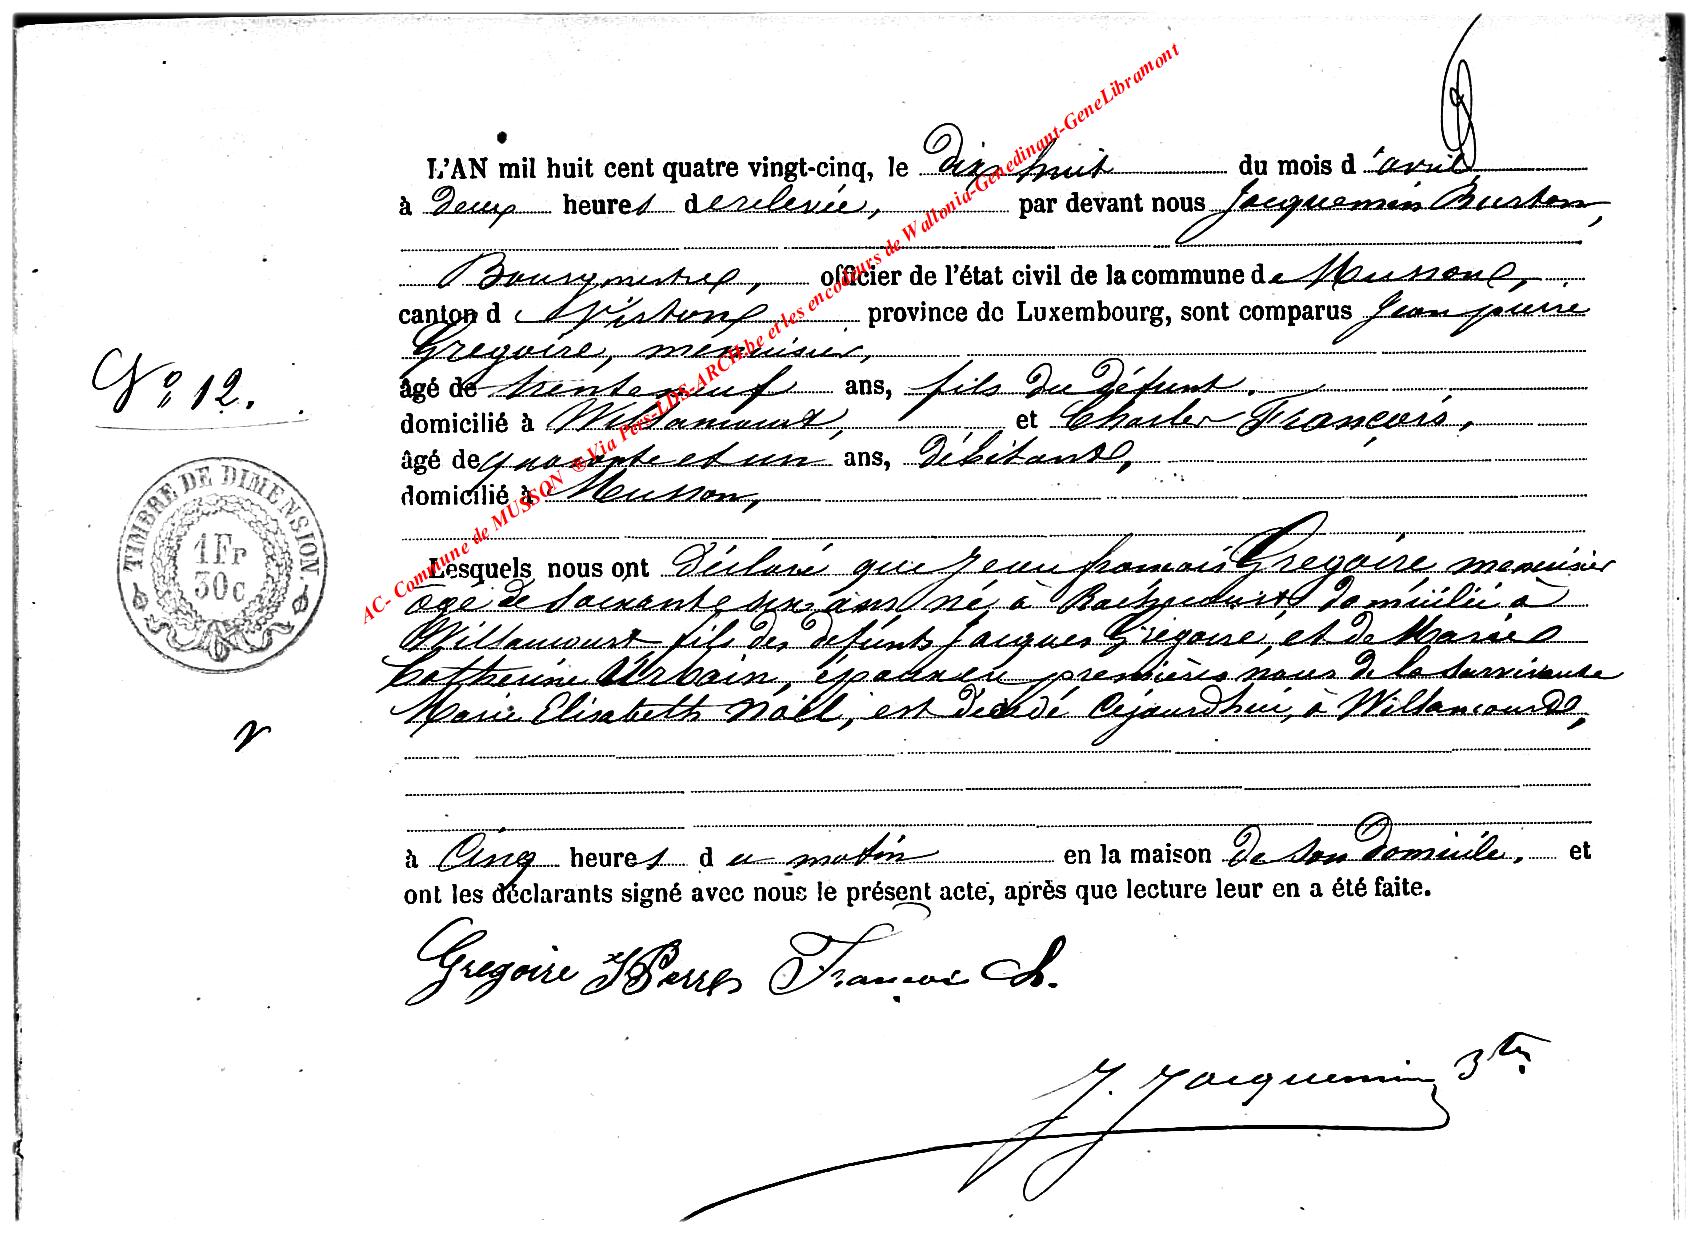 L'AN mil huit cent quatre vingt-cinq, le dix huit du mois d'avril
à deux heures de relevée, par devant nous Jacquemin Burton,
Bourgmestre, officier de l'état civil de la commune de Musson,
canton de Virton province de Luxembourg, sont comparus Jean pierre
Gregoire, menuisier,
âgé de trente neuf ans, fils du défunt.
domicilié à Willancourt, et Charles François,
âgé de quarante et un ans, débitant,
domicilié à Musson,
Lesquels nous ont déclaré que Jean françois Gregoire menuisier
agé de soixante dix ans né à Rachecourt, domicilié à
Willancourt fils des défunts Jacques Grégoire, et de Marie
Catherine Urbain, époux en premières noces de la survivante
Marie Elisabeth Noël, est décédé cejourdhui, à Willancourt,
à cinq heures du matin en la maison de son domicile, et
ont les déclarants signé avec nous le présent acte, après que lecture leur en a été faite.
N° 12.
TIMBRE DE DIMENSION.
1Fr
30c
Gregoire JPierre François Ch.
J. Jacquemin
AC- Commune de MUSSON ® Via Pers-LDS-ARCH.be et les encodeurs de Wallonia-Genedinant-GeneLibramont